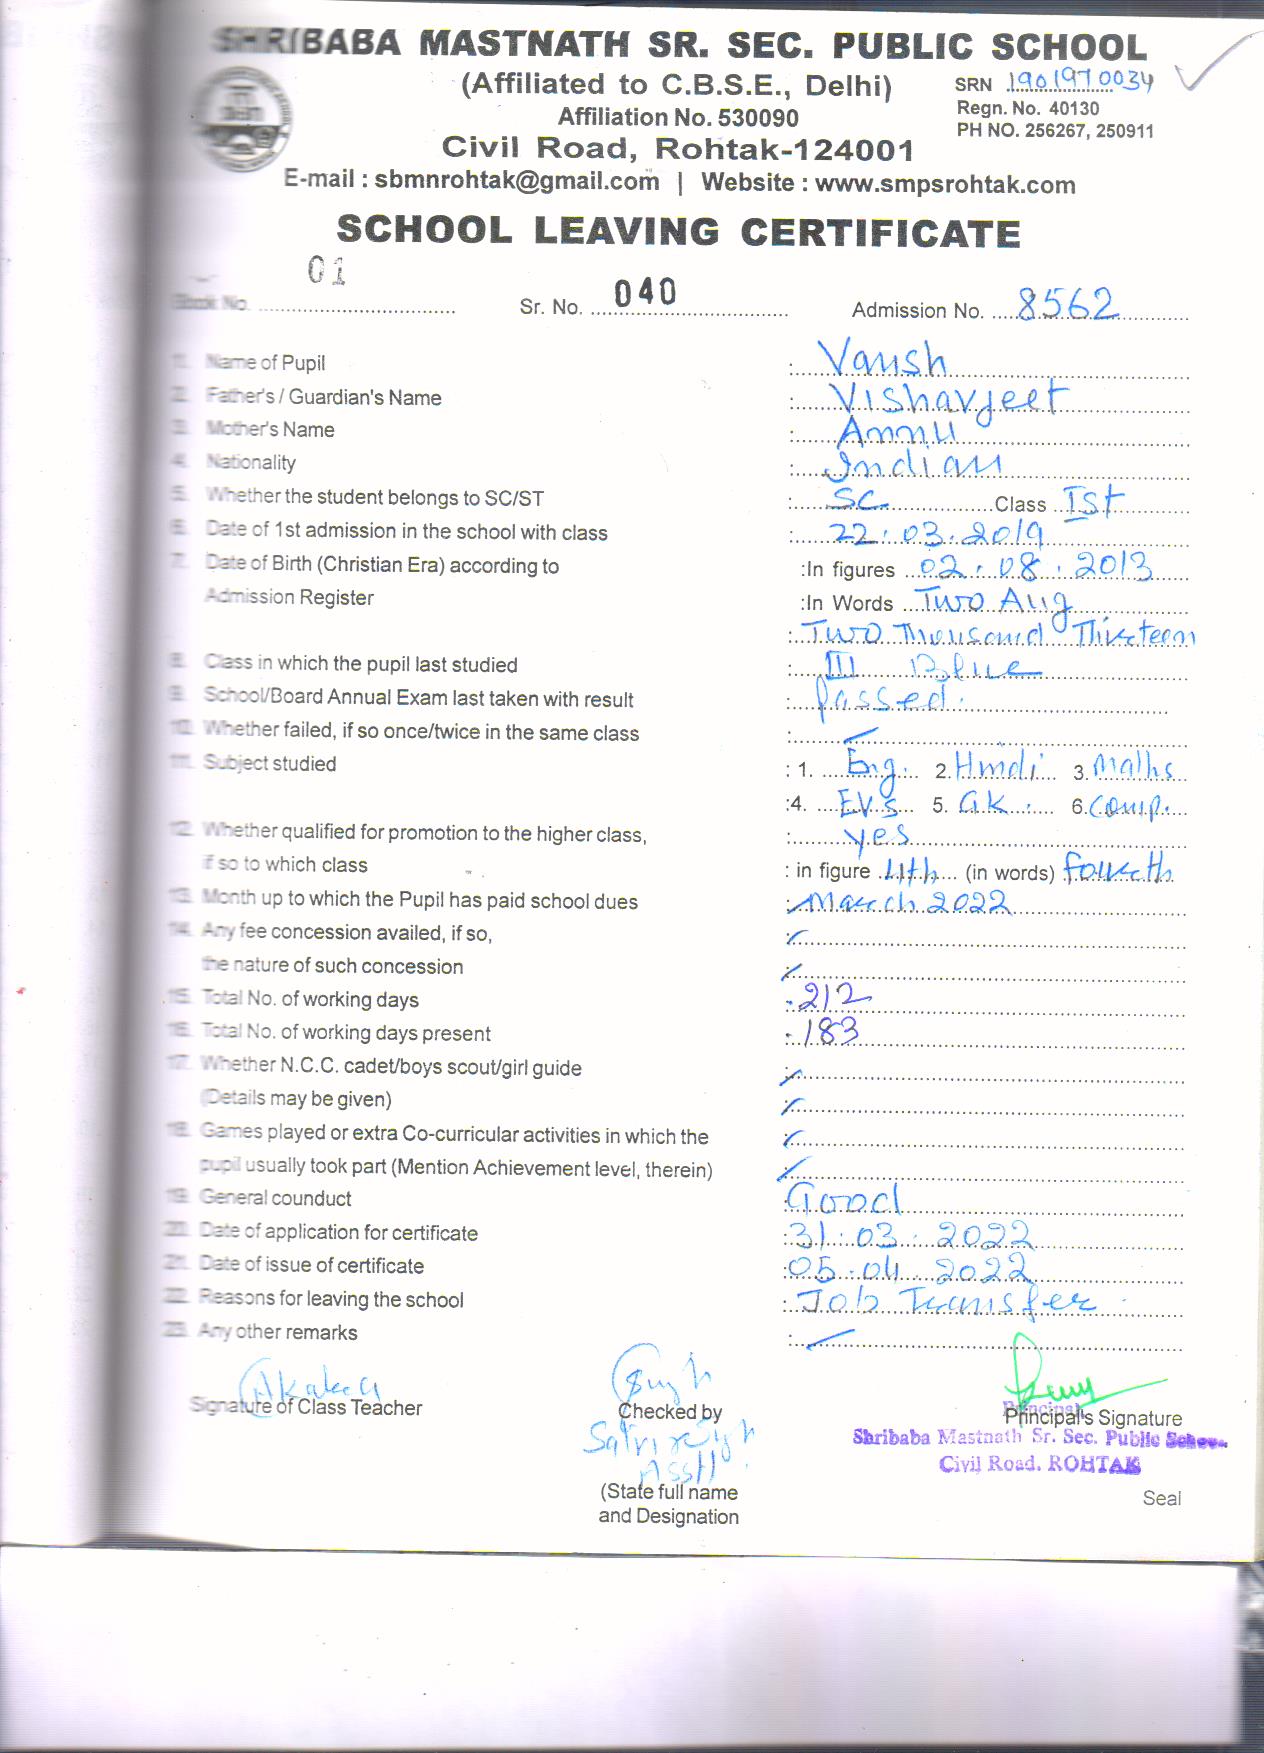 SHRIBABA MASTNATH SR. SEC. PUBLIC SCHOOL
(Affiliated to C.B.S.E., Delhi)
SRN 1901970034
Affiliation No. 530090
Regn. No. 40130
PH NO. 256267, 250911
Civil Road, Rohtak-124001
E-mail : sbmnrohtak@gmail.com | Website : www.smpsrohtak.com
SCHOOL LEAVING CERTIFICATE
Book No. 01 Sr. No. 040 Admission No. 8562
1. Name of Pupil : Vansh
2. Father's / Guardian's Name : Vishavjeet
3. Mother's Name : Annu
4. Nationality : Indian
5. Whether the student belongs to SC/ST : SC Class Ist
6. Date of 1st admission in the school with class : 22.03.2019
7. Date of Birth (Christian Era) according to :In figures 02.08.2013
Admission Register :In Words Two Aug
: Two Thousand Thirteen
8. Class in which the pupil last studied : III Blue
9. School/Board Annual Exam last taken with result : Passed.
10. Whether failed, if so once/twice in the same class :
11. Subject studied : 1. Eng. 2. Hindi 3. Maths
:4. EVS 5. G.K. 6. Comp.
12. Whether qualified for promotion to the higher class, : yes
if so to which class : in figure 4th (in words) fourth
13. Month up to which the Pupil has paid school dues : March 2022
14. Any fee concession availed, if so, :
the nature of such concession :
15. Total No. of working days : 212
16. Total No. of working days present : 183
17. Whether N.C.C. cadet/boys scout/girl guide :
(Details may be given) :
18. Games played or extra Co-curricular activities in which the :
pupil usually took part (Mention Achievement level, therein) :
19. General counduct : Good
20. Date of application for certificate : 31.03.2022
21. Date of issue of certificate : 05.04.2022
22. Reasons for leaving the school : Job Transfer
23. Any other remarks :
Signature of Class Teacher Checked by Principal's Signature
Principal
Shribaba Mastnath Sr. Sec. Public School
Civil Road, ROHTAK
(State full name
and Designation
Seal